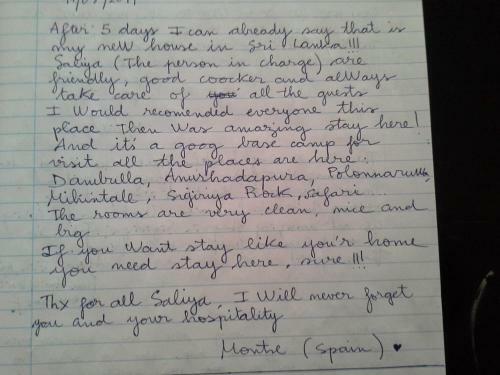 After 5 days I can already say that is
my new house in Sri Lanka!!!
Saliya (The person in charge) are
friendly, good coocker and always
take care of you all the guests
I Would recomended everyone this
place Then Was amazing stay here!
And it's a goog base camp for
visit all the places are here:
Dambulla, Anurhadapura, Polonnaruwa,
Mihintale, Sigiriya Rock, safari...
The rooms are very clean, nice and
big.
If you Want stay like you'r home
you need stay here, sure!!!
Thx for all Saliya, I Will never forget
you and your hospitality
Montse (Spain) ♥